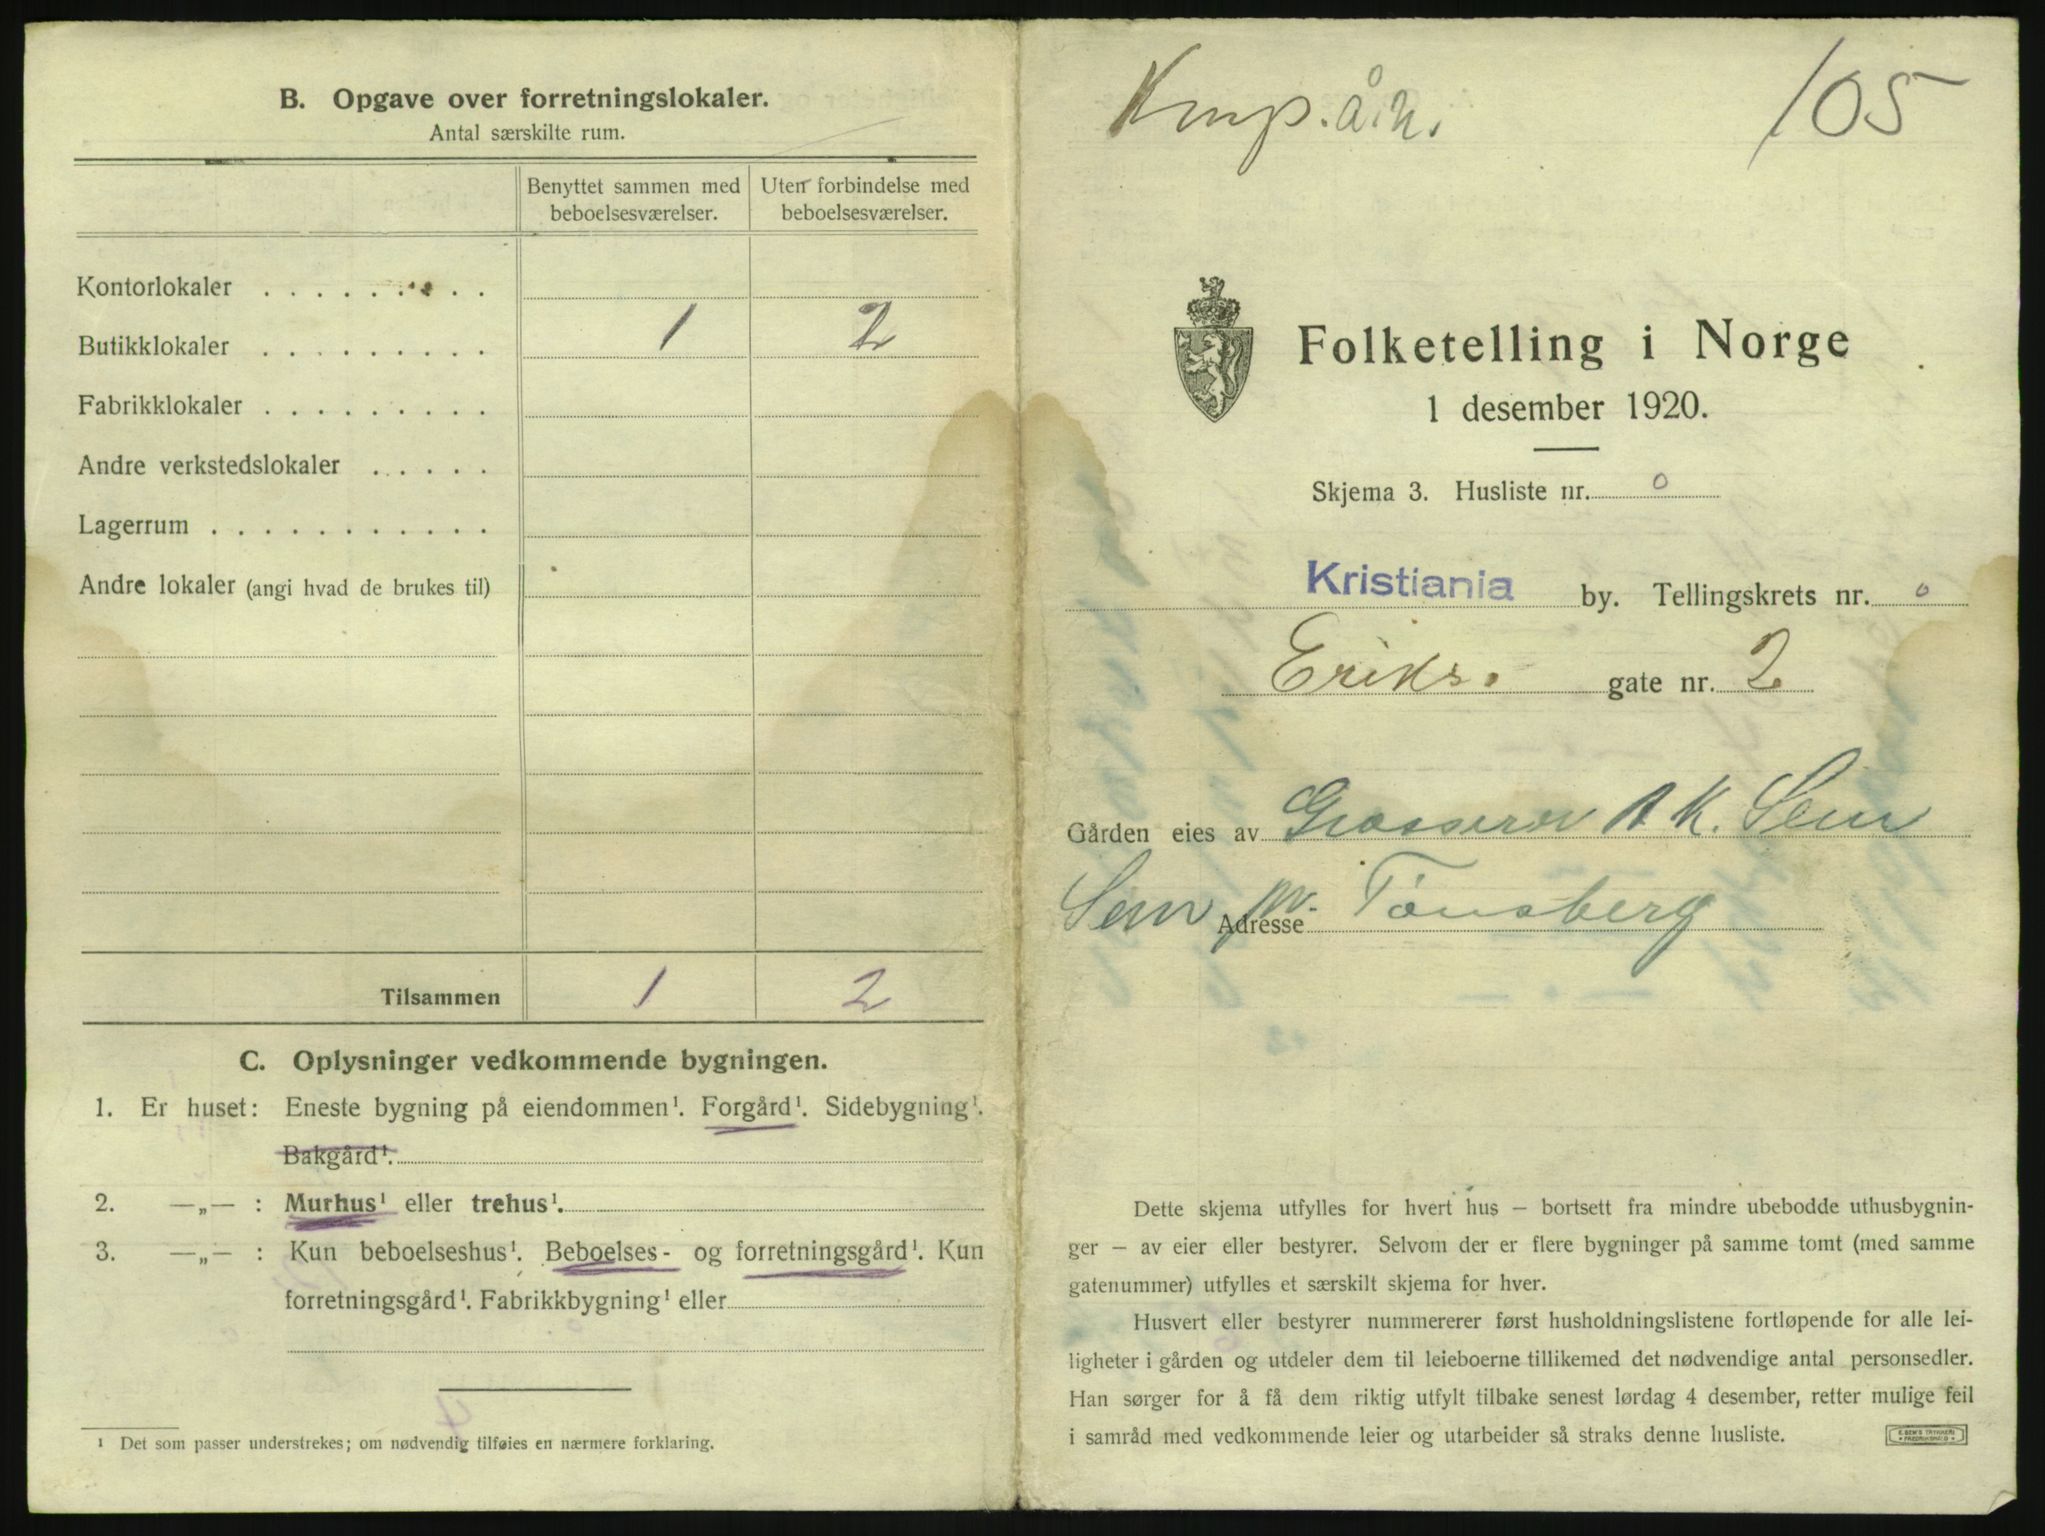 B. Opgave over forretningslokaler.
Antal særskilte rum.
Benyttet sammen med beboelsesværelser.
Uten forbindelse med beboelsesværelser.
Kontorlokaler . . . . . . . . .
Butikklokaler . . . . . . . . . 1 2
Fabrikklokaler . . . . . . . . .
Andre verkstedslokaler . . . . .
Lagerrum . . . . . . . . . . .
Andre lokaler (angi hvad de brukes til)
Tilsammen 1 2
C. Oplysninger vedkommende bygningen.
1. Er huset: Eneste bygning på eiendommen¹. Forgård¹. Sidebygning¹.
Bakgård¹.
2. —„— : Murhus¹ eller trehus¹.
3. —„— : Kun beboelseshus¹. Beboelses- og forretningsgård¹. Kun
forretningsgård¹. Fabrikkbygning¹ eller
4
¹ Det som passer understrekes; om nødvendig tilføies en nærmere forklaring.
105
Folketelling i Norge
1 desember 1920.
Skjema 3. Husliste nr. 0
Kristiania by. Tellingskrets nr. 0
Eriks. gate nr. 2
Gården eies av Grosserer A K. Sem
Sem pr. Adresse Tønsberg
Dette skjema utfylles for hvert hus – bortsett fra mindre ubebodde uthusbygnin-
ger – av eier eller bestyrer. Selvom der er flere bygninger på samme tomt (med samme
gatenummer) utfylles et særskilt skjema for hver.
Husvert eller bestyrer nummererer først husholdningslistene fortløpende for alle lei-
ligheter i gården og utdeler dem til leieboerne tillikemed det nødvendige antal personsedler.
Han sørger for å få dem riktig utfylt tilbake senest lørdag 4 desember, retter mulige feil
i samråd med vedkommende leier og utarbeider så straks denne husliste.
E. SEM'S TRYKKERI
FREDRIKSHALD